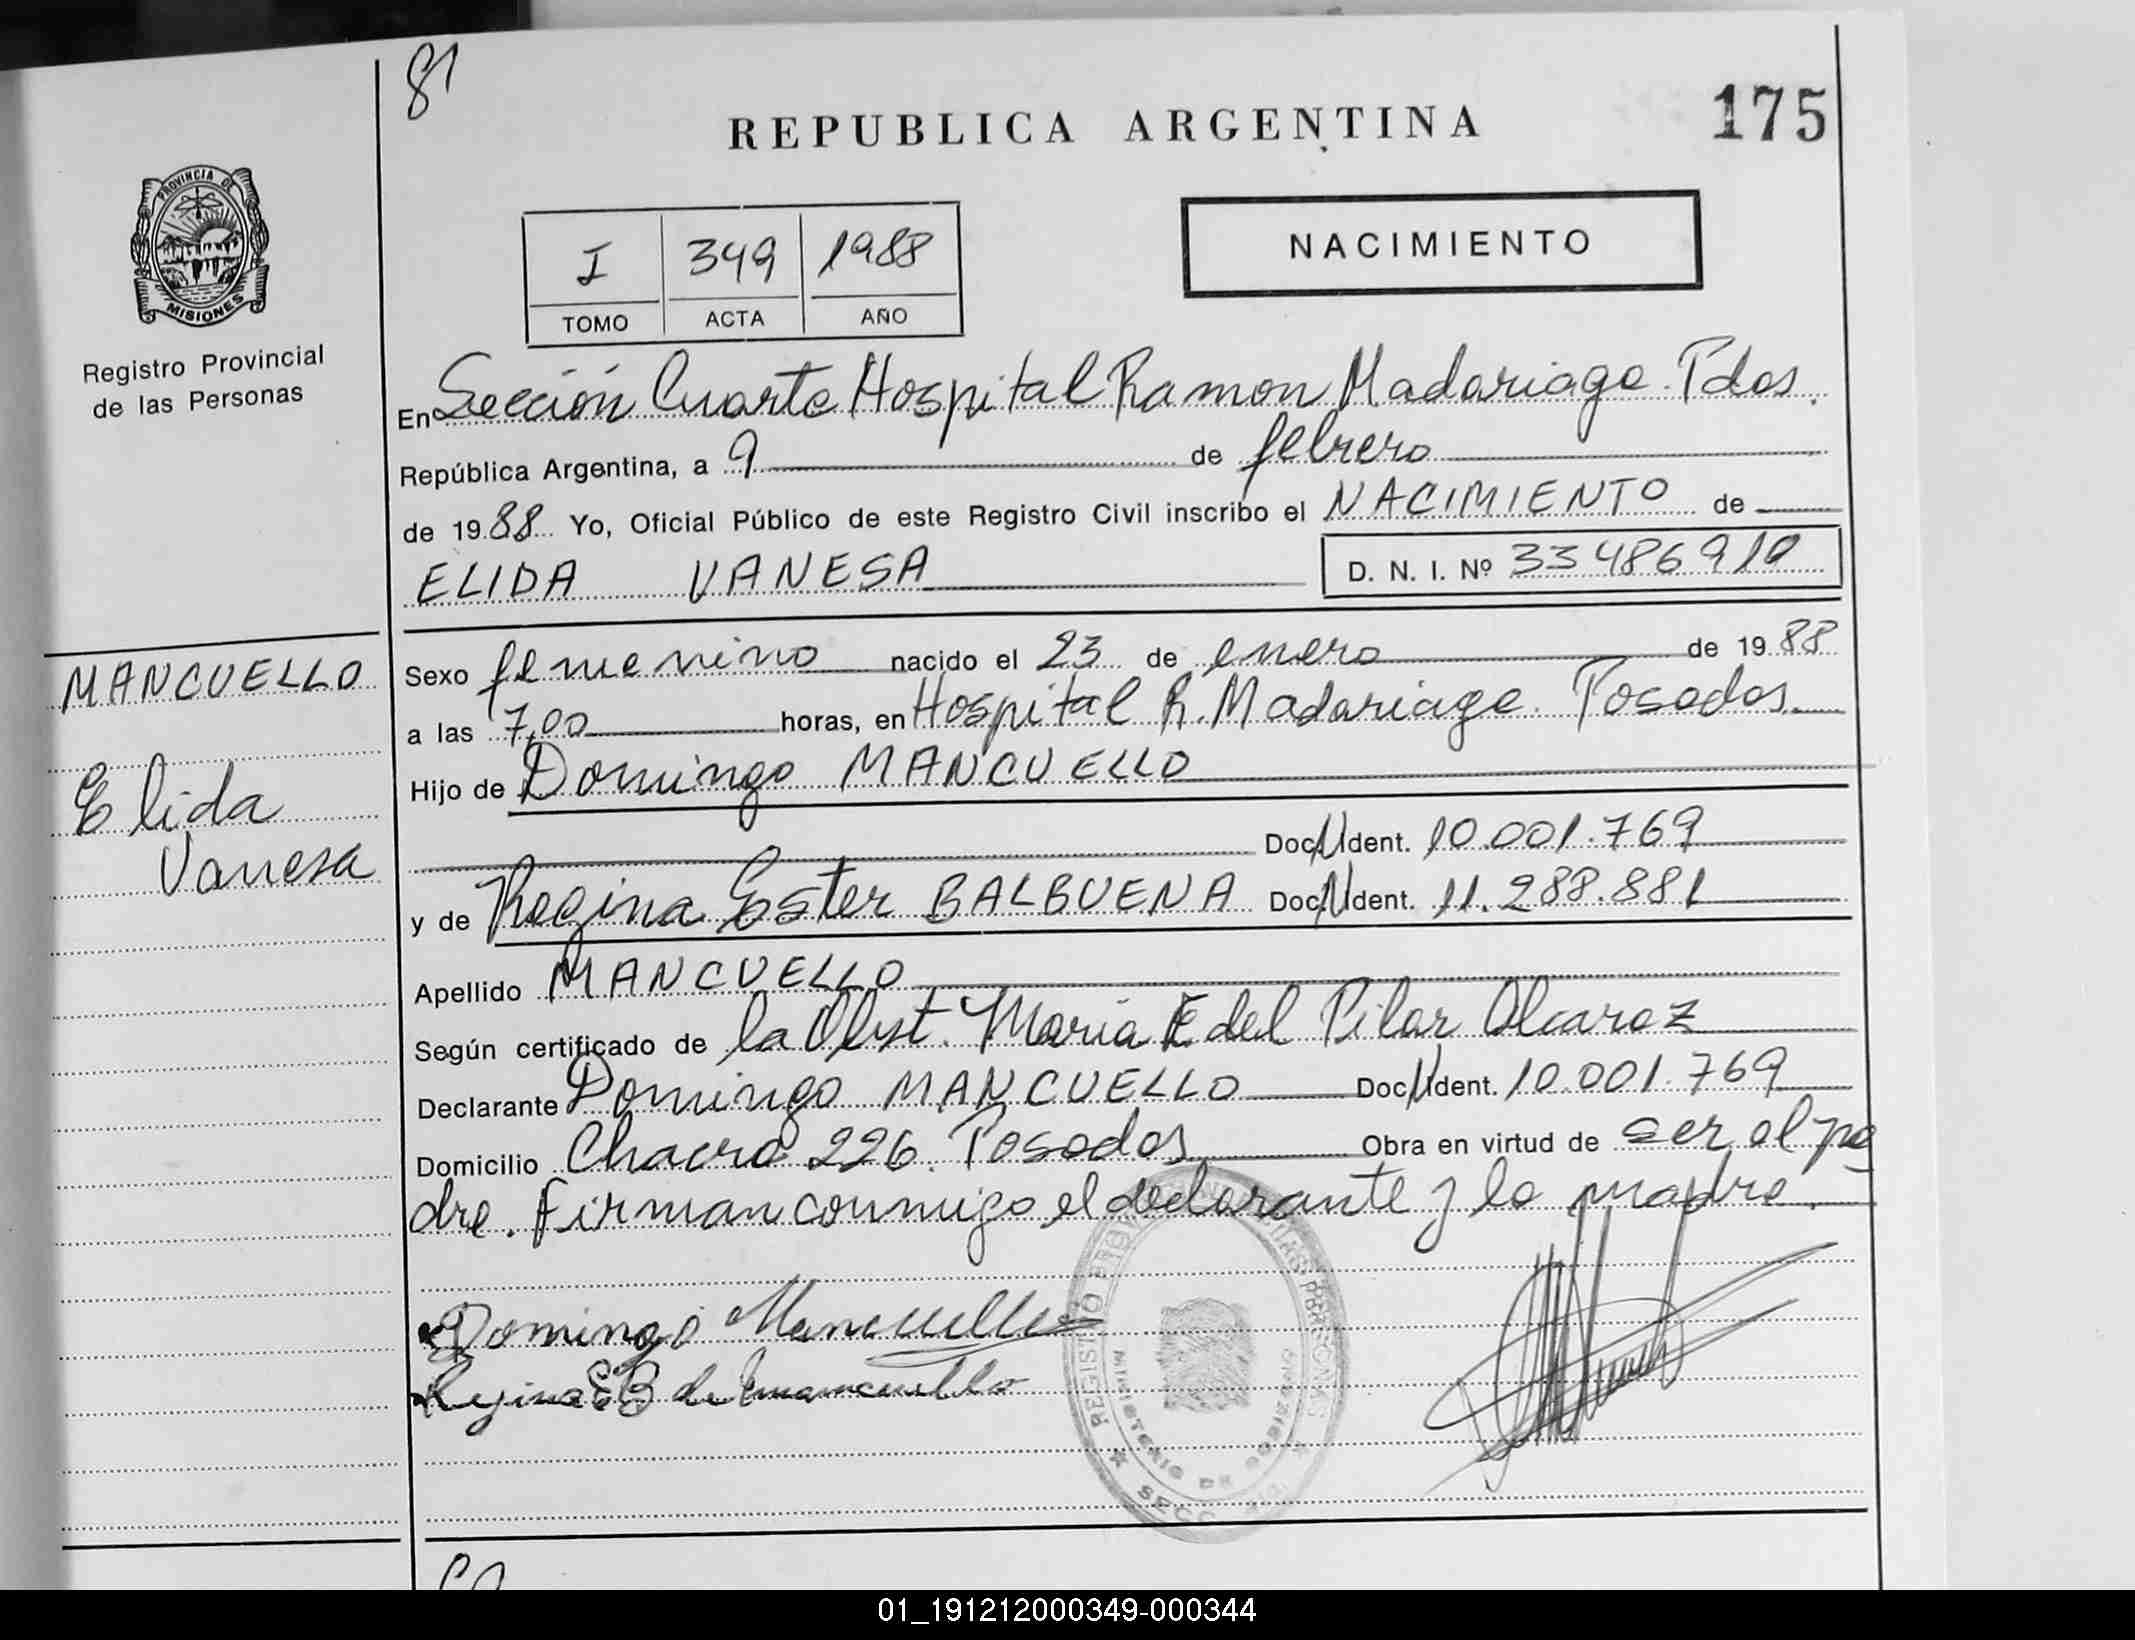 81
REPUBLICA ARGENTINA
175
PROVINCIA DE
MISIONES
Registro Provincial
de las Personas
I 349 1988
TOMO ACTA AÑO
NACIMIENTO
En Sección Cuarta Hospital Ramon Madariaga. Pdas.
República Argentina, a 9 de febrero
de 1988 Yo, Oficial Público de este Registro Civil inscribo el NACIMIENTO de
ELIDA VANESA D. N. I. Nº 33486910
MANCUELLO
Elida
Vanesa
Sexo femenino nacido el 23 de enero de 1988
a las 7,00 horas, en Hospital R. Madariaga. Posadas.
Hijo de Domingo MANCUELLO
Doc. Ident. 10.001.769
y de Regina Ester BALBUENA Doc. Ident. 11.288.881
Apellido MANCUELLO
Según certificado de la Obst. Maria E del Pilar Alcaraz
Declarante Domingo MANCUELLO Doc. Ident. 10.001.769
Domicilio Chacra 226. Posadas Obra en virtud de ser el pa
dre. Firman conmigo el declarante y la madre.
Domingo Mancuello
Regina E B de Mancuello
REGISTRO PERSONAS
MINISTERIO DE GOBIERNO
SECC
01_191212000349-000344